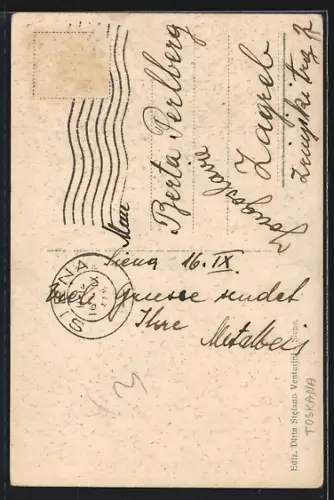 Berta Perlberg
Zagreb
Zrinjski trg
Jugoslavia
Siena 16.IX.
Viele Gruesse sendet
Ihre
SIENA
Ediz. Ditta Stefano Venturini, Siena.
TOSKANA
3